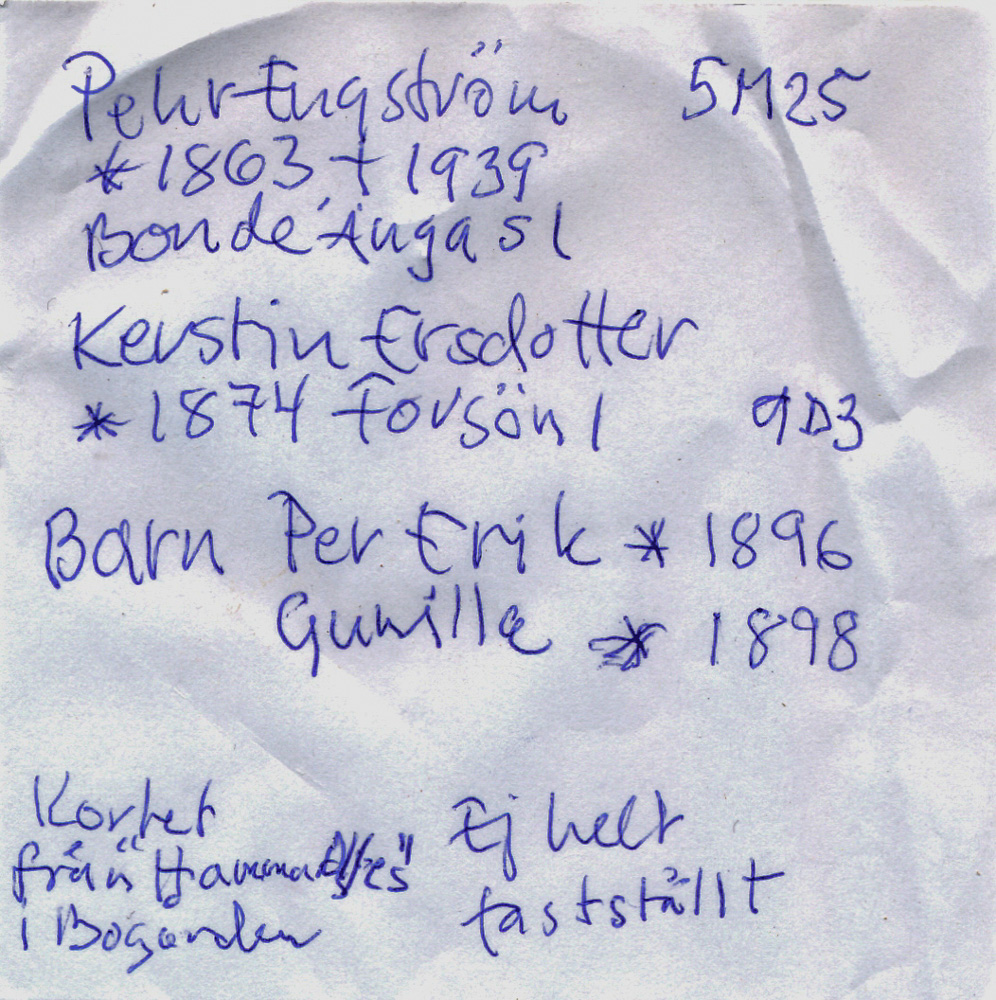 Pehr Engström 5M25
* 1863 † 1939
Bonde Änga s 1
Kerstin Ersdotter
* 1874 Forsön 1 9D3
Barn Per Erik * 1896
Gunilla * 1898
Kortet
från
i Bogården
Ej helt
fastställt